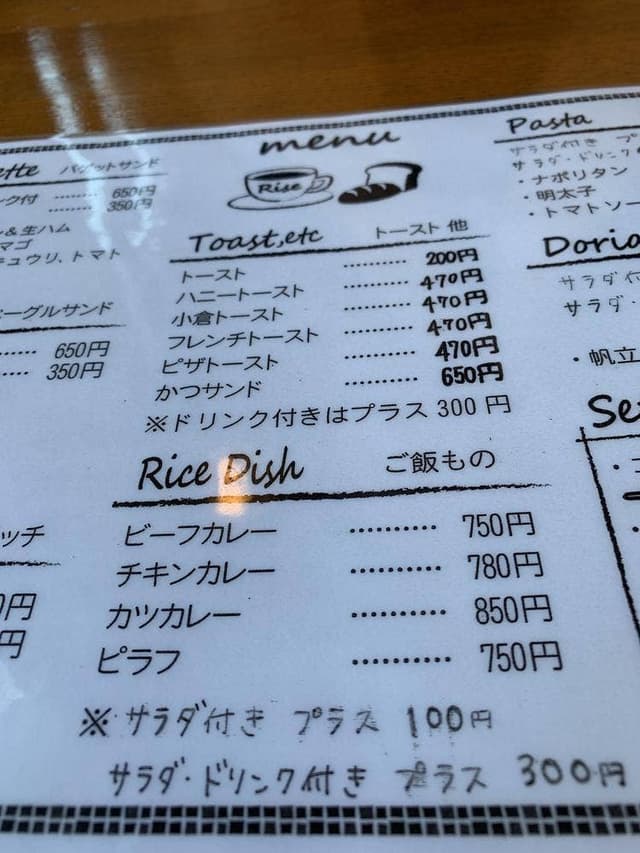 menu
Rise
ette バゲットサンド
ンク付 ……… 650円
……… 350円
& 生ハム
マゴ
キュウリ、トマト
ーグルサンド
…… 650円
…… 350円
ッチ
0円
円
Toast,etc トースト 他
トースト ……… 200円
ハニートースト ……… 470円
小倉トースト ……… 470円
フレンチトースト ……… 470円
ピザトースト ……… 470円
かつサンド ……… 650円
※ドリンク付きはプラス 300 円
Rice Dish ご飯もの
ビーフカレー ……… 750円
チキンカレー ……… 780円
カツカレー ……… 850円
ピラフ ……… 750円
※ サラダ付き プラス 100円
サラダ・ドリンク付き プラス 300円
Pasta
サラダ付き プ
サラダ・ドリンク
・ナポリタン
・明太子
・トマトソー
Doria
サラダ付
サラダ・
・帆立
Se